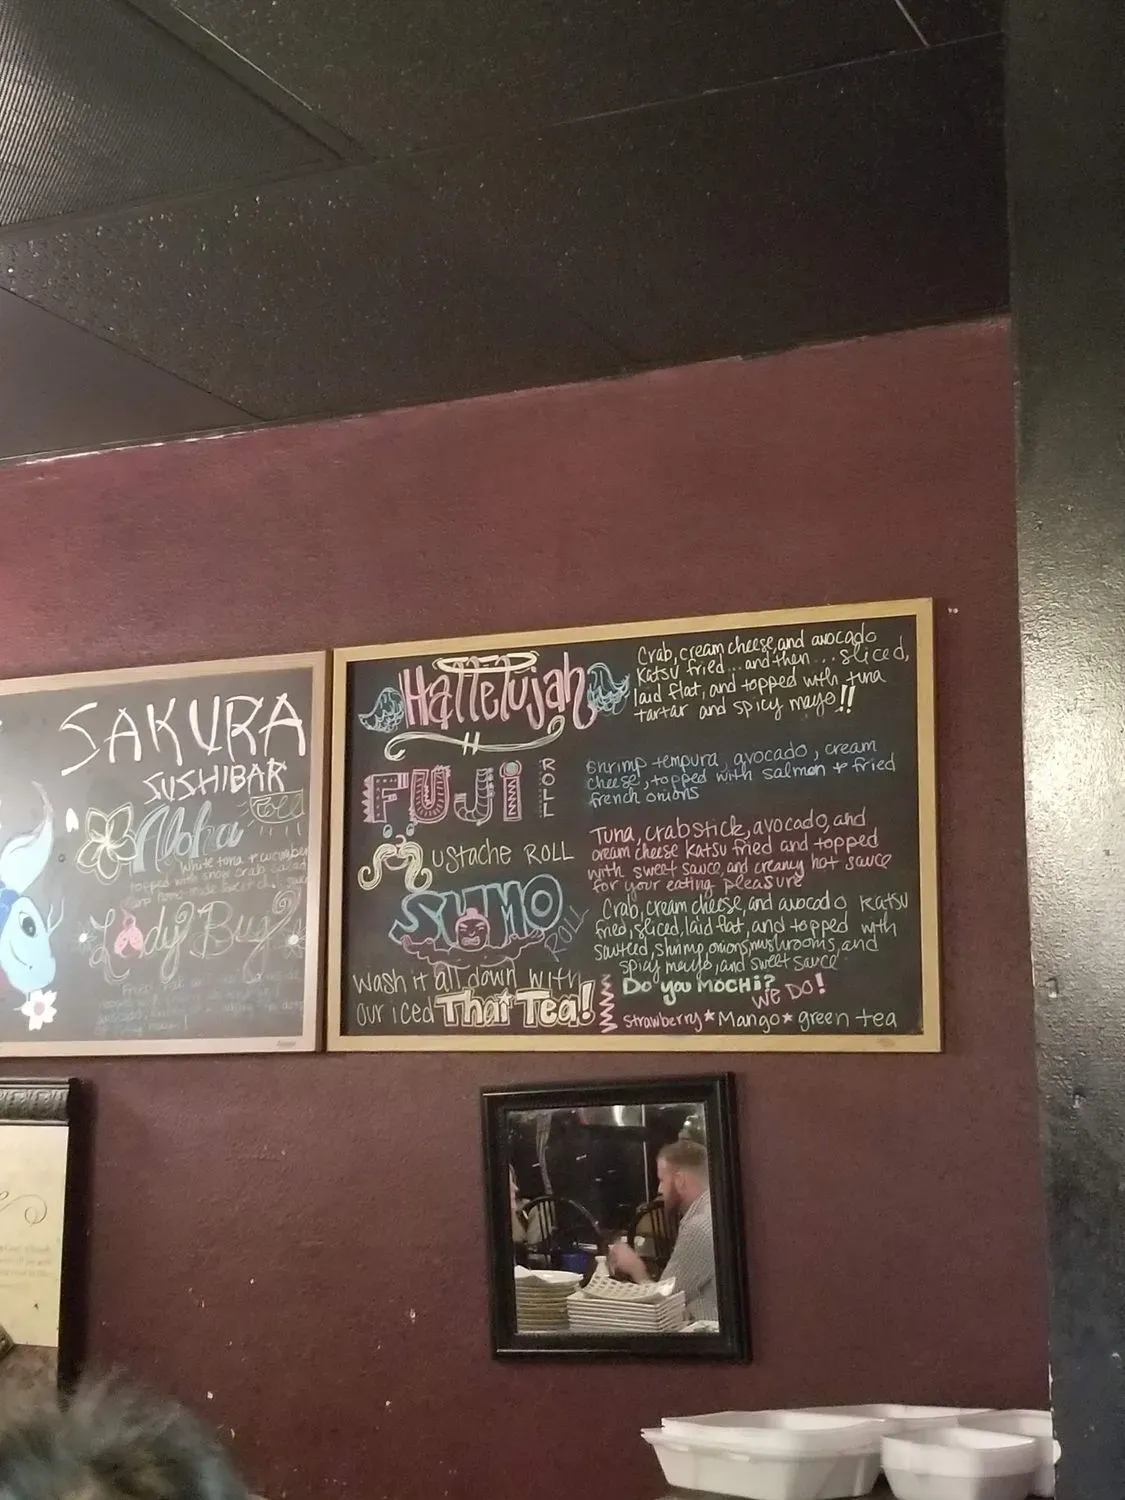 SAKURA
SUSHIBAR
Aloha
Roll
white tuna + cucumber
topped with snow crab
Lady Bug
Hallelujah
Crab, cream cheese, and avocado
Katsu fried... and then... sliced,
laid flat, and topped with tuna
tartar and spicy mayo!!
FUJI
ROLL
shrimp tempura, avocado, cream
cheese, topped with salmon + fried
french onions
Mustache ROLL
Tuna, crabstick, avocado, and
cream cheese Katsu fried and topped
with sweet sauce, and creamy hot sauce
for your eating pleasure
SUMO
ROLL
Crab, cream cheese, and avocado Katsu
fried, sliced, laid flat, and topped with
sauteed, shrimp, onions, mushrooms, and
spicy mayo, and sweet sauce
wash it all down with
our iced Thai Tea!
Do you MOCHI?
we DO!
strawberry * Mango * green tea